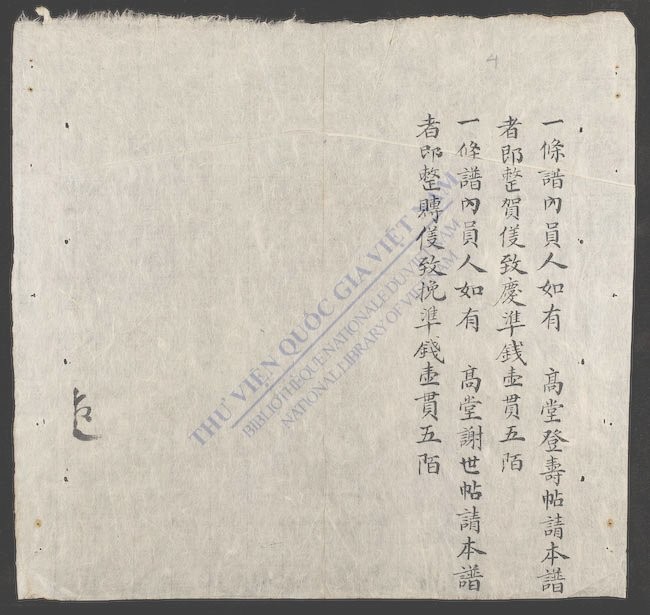 一條譜內員人如有　高堂登壽帖請本譜
者即整賀儀致慶準銭壹貫五陌
一條譜內員人如有　高堂謝世帖請本譜
者即整賻儀致挽準錢壹貫五陌
THƯ VIỆN QUỐC GIA VIỆT NAM
BIBLIOTHÈQUE NATIONALE DU VIETNAM
NATIONAL LIBRARY OF VIETNAM
4